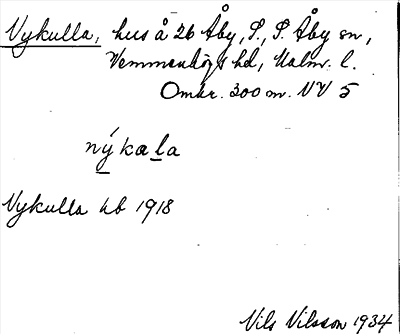 Vykulla, hus å 26 Åby, S., S. Åby sn,
Vemmenhögs hd, Malm. l.
Omkr. 300 m. NV 5
nýkala
Vykulla kb 1918
Nils Nilsson 1934